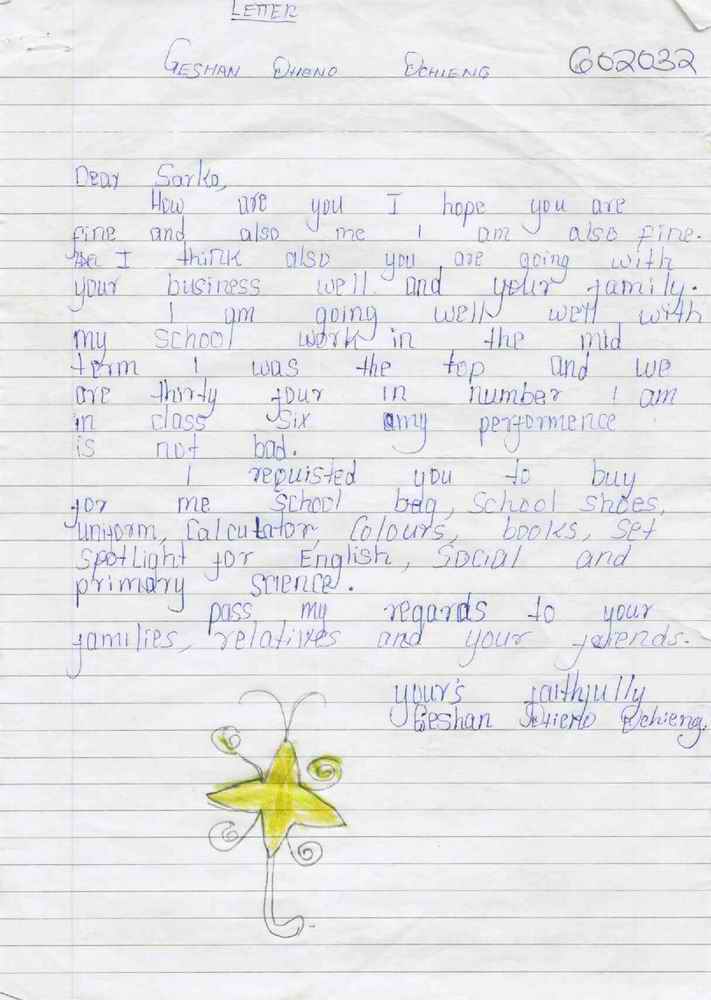 LETTER
GESHAN OTIENO OCHIENG 602032
Dear Sarko,
How are you I hope you are
fine and also me I am also fine.
I think also you are going with
your business well and your family.
I am going well well with
my school work in the mid
term I was the top and we
are thirty four in number I am
in class six my performence
is not bad.
I requisted you to buy
for me school bag, school shoes,
uniform, Calculator, Colours, books, set
spotlight for English, Social and
primary science.
pass my regards to your
families, relatives and your friends.
your's faithfully
Geshan Otieno Ochieng.